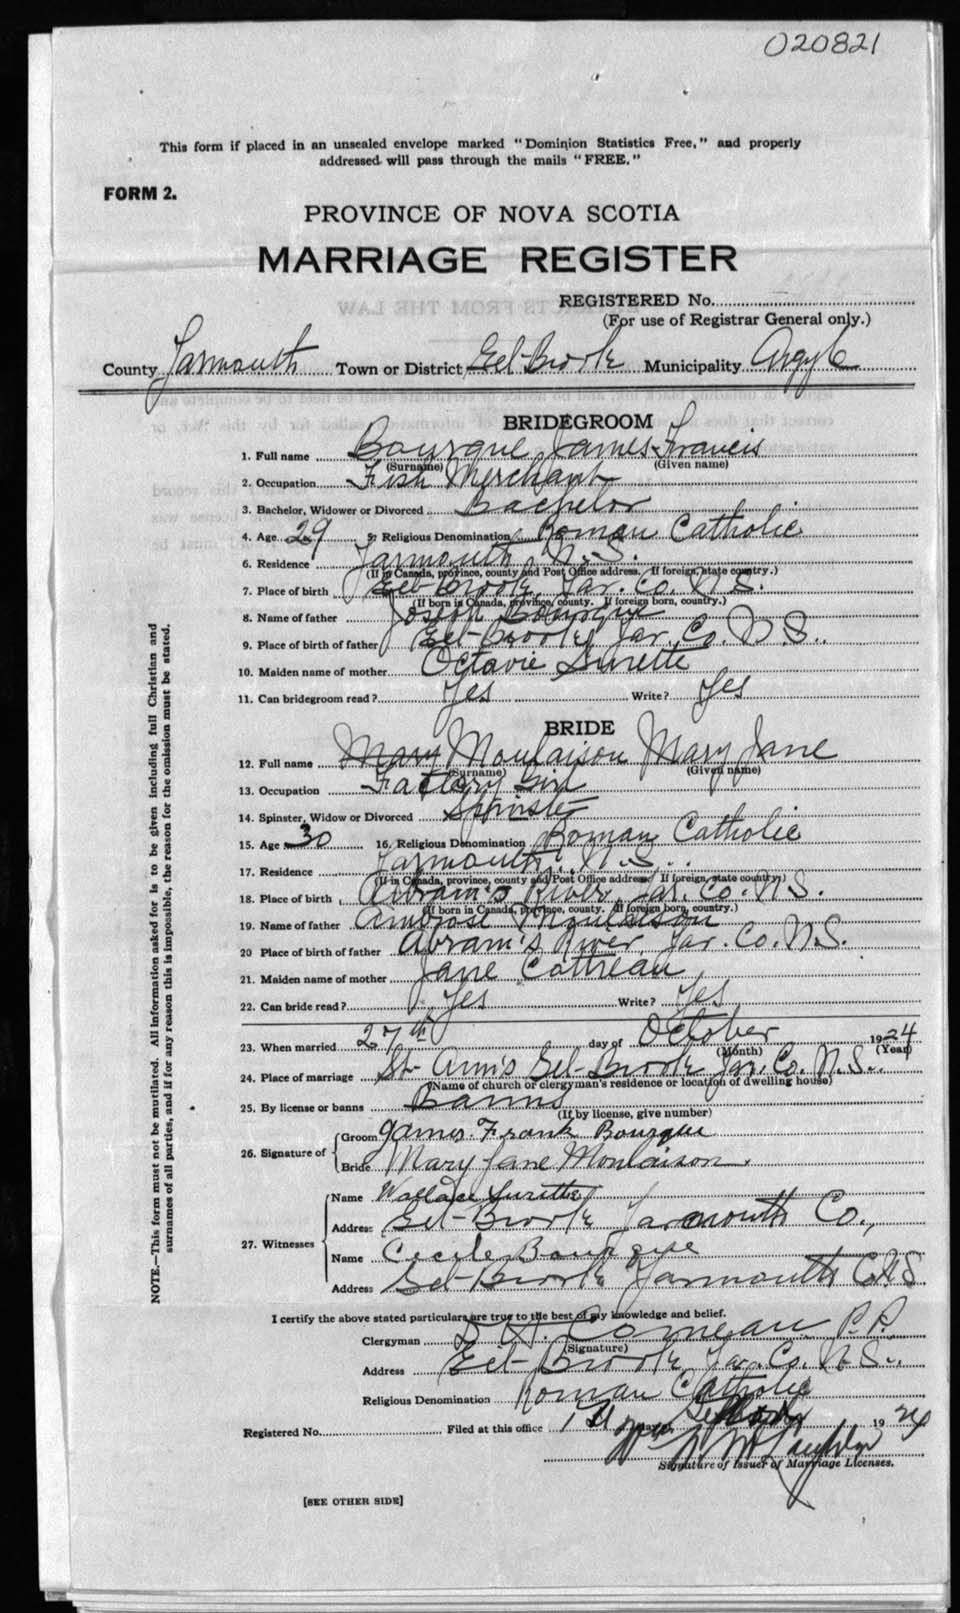 020821
This form if placed in an unsealed envelope marked "Dominion Statistics Free," and properly
addressed will pass through the mails "FREE."
FORM 2.
PROVINCE OF NOVA SCOTIA
MARRIAGE REGISTER
REGISTERED No.
(For use of Registrar General only.)
County Yarmouth Town or District Eel-Brook Municipality Argyle
BRIDEGROOM
1. Full name Bourque James Francis
(Surname) (Given name)
2. Occupation Fish Merchant
3. Bachelor, Widower or Divorced Bachelor
4. Age 29 5. Religious Denomination Roman Catholic
6. Residence Yarmouth N.S.
(If in Canada, province, county and Post Office address. If foreign, state country.)
7. Place of birth Eel-Brook, Yar. Co. N.S.
(If born in Canada, province, county. If foreign born, country.)
8. Name of father Joseph Bourque
9. Place of birth of father Eel-Brook, Yar. Co. N.S.
10. Maiden name of mother Octavie Surette
11. Can bridegroom read? Yes Write? Yes
BRIDE
12. Full name Mary Moulaison Mary Jane
(Surname) (Given name)
13. Occupation Factory Girl
14. Spinster, Widow or Divorced Spinster
15. Age 30 16. Religious Denomination Roman Catholic
17. Residence Yarmouth, N.S.
(If in Canada, province, county and Post Office address. If foreign, state country.)
18. Place of birth Abram's River, Yar. Co. N.S.
(If born in Canada, province, county. If foreign born, country.)
19. Name of father Ambrose Moulaison
20 Place of birth of father Abram's River, Yar. Co. N.S.
21. Maiden name of mother Jane Cottreau
22. Can bride read? Yes Write? Yes
23. When married 27th day of October 1924
(Month) (Year)
24. Place of marriage St. Ann's Eel-Brook Yar. Co. N.S.
(Name of church or clergyman's residence or location of dwelling house)
25. By license or banns Banns
(If by license, give number)
26. Signature of
Groom James. Frank Bourque
Bride Mary Jane Moulaison.
27. Witnesses
Name Wallace Surette
Address Eel-Brook Yarmouth Co.,
Name Cecile Bourque
Address Eel-Brook Yarmouth Co N S
I certify the above stated particulars are true to the best of my knowledge and belief.
Clergyman D H. Comeau P.P.
(Signature)
Address Eel-Brook, Yar. Co. N.S.
Religious Denomination Roman Catholic
Registered No. Filed at this office 1924
Signature of Issuer of Marriage Licenses.
[SEE OTHER SIDE]
NOTE.—This form must not be mutilated. All information asked for is to be given including full Christian and
surnames of all parties, and if for any reason this is impossible, the reason for the omission must be stated.